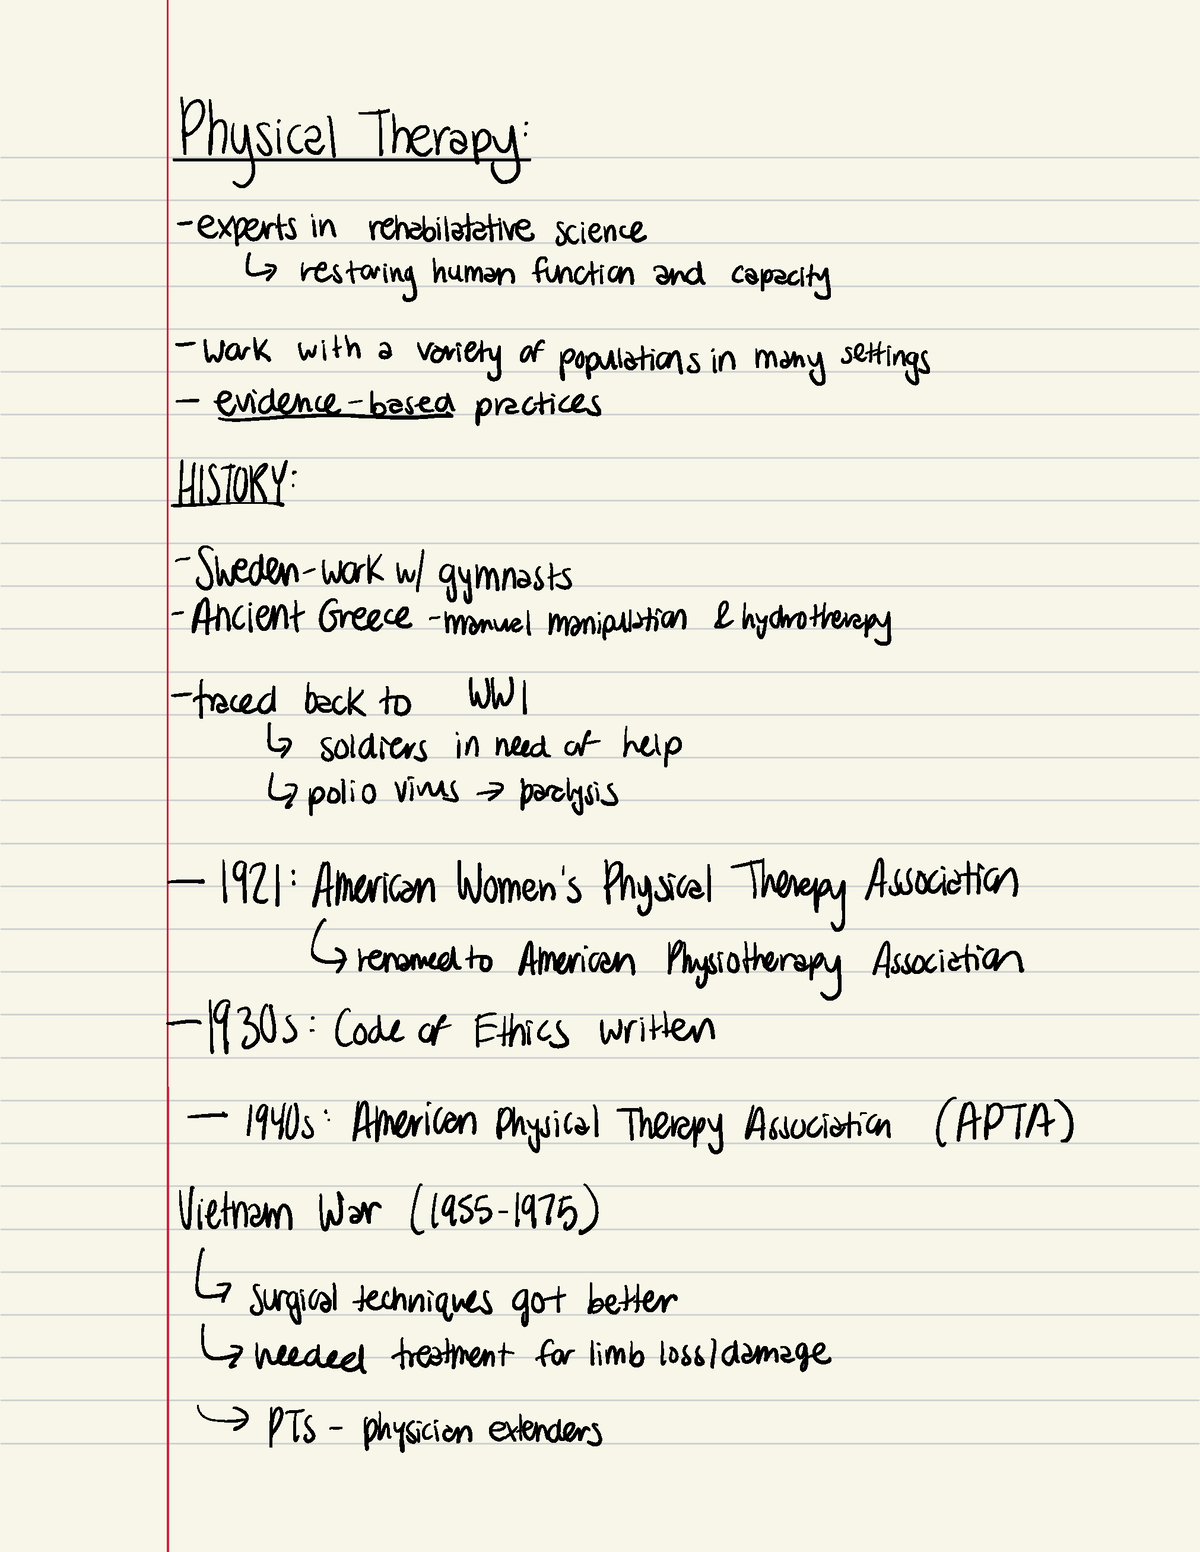 Physical Therapy:
- experts in rehabilatative science
↳ restoring human function and capacity
- work with a variety of populations in many settings
- evidence-based practices
HISTORY:
- Sweden - work w/ gymnasts
- Ancient Greece - manuel manipulation & hydrotherapy
- traced back to WW1
↳ soldiers in need of help
↳ polio virus → paralysis
- 1921: American Women's Physical Therapy Association
↳ renamed to American Physiotherapy Association
- 1930s: Code of Ethics written
- 1940s: American Physical Therapy Association (APTA)
Vietnam War (1955-1975)
↳ surgical techniques got better
↳ needed treatment for limb loss/damage
→ PTS - physician extenders